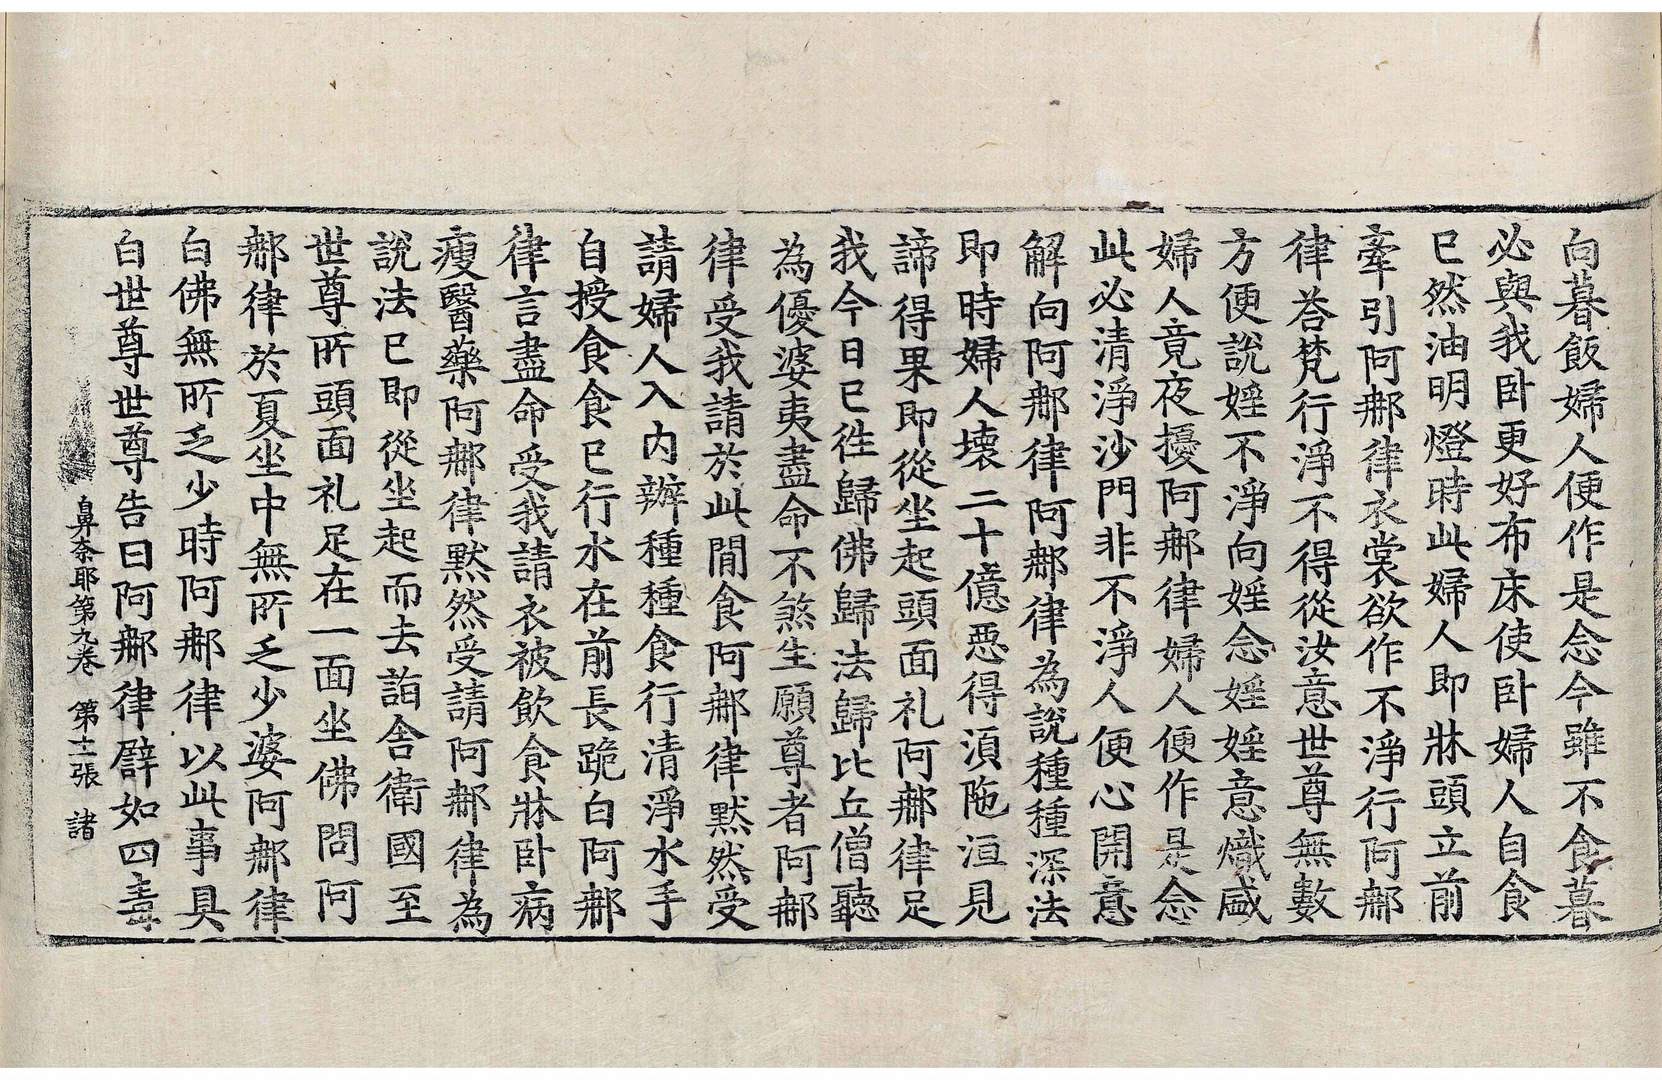 向暮飯婦人便作是念今雖不食暮
必與我卧更好布床使卧婦人自食
已然油明燈時此婦人即牀頭立前
牽引阿那律衣裳欲作不淨行阿那
律荅梵行淨不得從汝意世尊無數
方便說婬不淨向婬念婬婬意熾盛
婦人竟夜擾阿那律婦人便作是念
此必清淨沙門非不淨人便心開意
解向阿那律阿那律為說種種深法
即時婦人壊二十億惡得湏陁洹見
諦得果即從坐起頭面礼阿那律足
我今日已徃歸佛歸法歸比丘僧聽
為優婆夷盡命不煞生願尊者阿那
律受我請於此間食阿那律默然受
請婦人入内辦種種食行清淨水手
自授食食已行水在前長跪白阿那
律言盡命受我請衣被飲食牀卧病
瘦醫藥阿那律默然受請阿那律為
說法已即從坐起而去詣舍衛國至
世尊所頭面礼足在一面坐佛問阿
那律於夏坐中無所乏少婆阿那律
白佛無所乏少時阿那律以此事具
白世尊世尊告曰阿那律譬如四毒
鼻奈耶第九卷 第十一張 諸